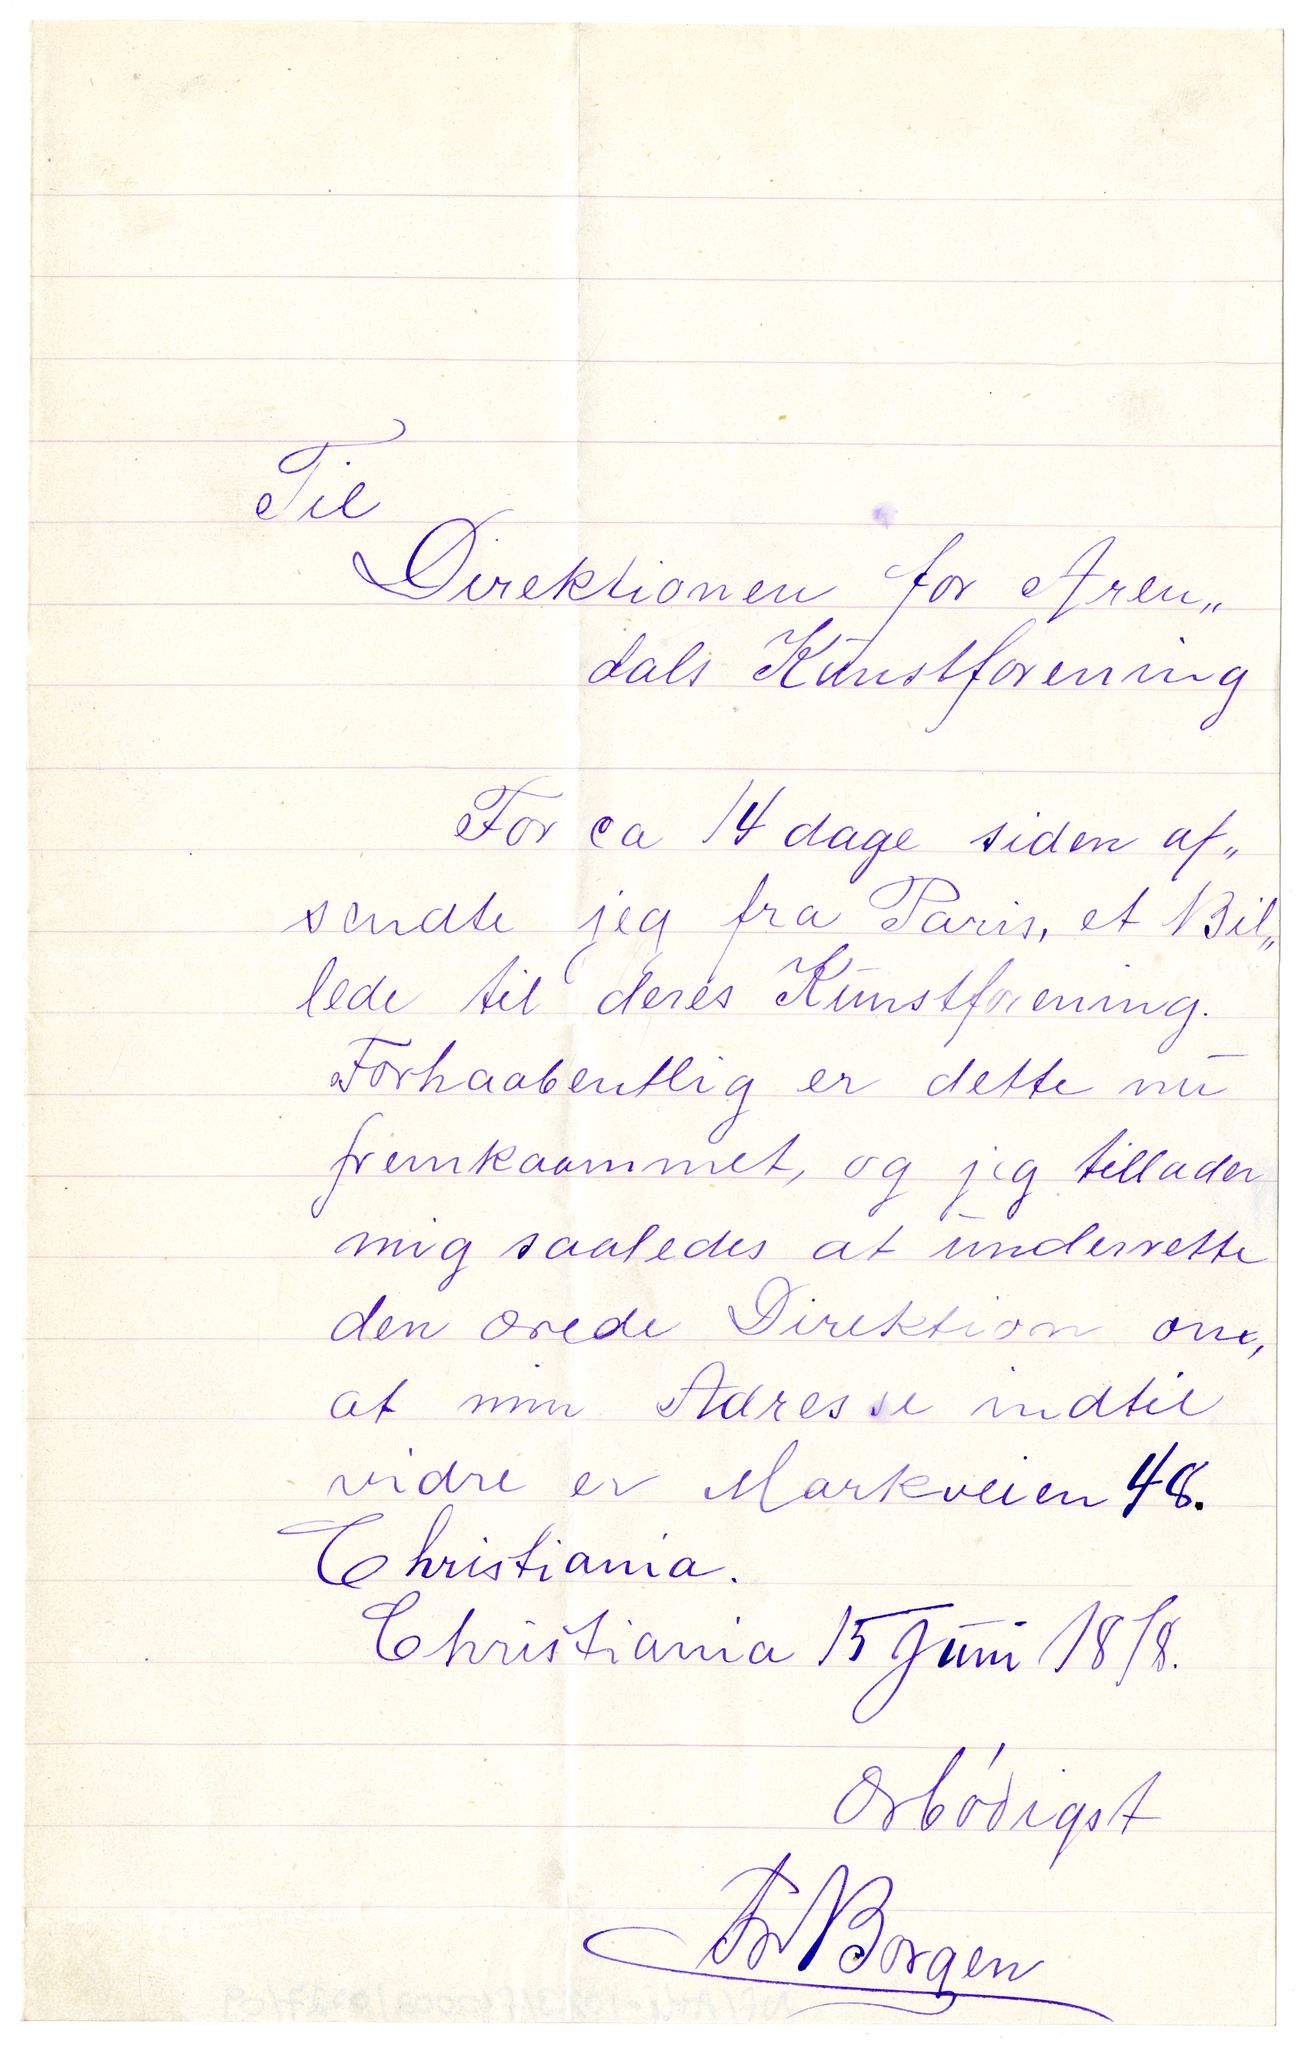 Til
Direktionen for Aren„
dals Kunstforening
For ca 14 dage siden af„
sendte jeg fra Paris, et Bil„
lede til deres Kunstforening.
Forhaabentlig er dette nu
fremkaammet, og jeg tillader
mig saaledes at underrette
den ærede Direktion om,
at min Adresse indtil
vidre er Markveien 48.
Christiania.
Christiania 15 Juni 1878.
Ærbódigst
Fr Borgen